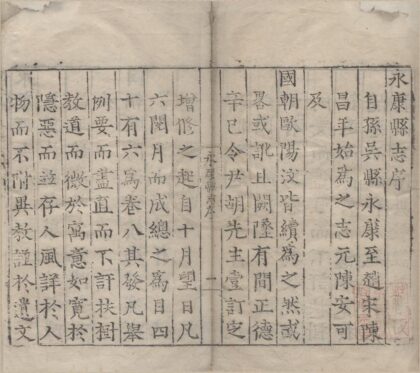 永康縣志序
自孫吳縣永康至趙宋陳
昌年始為之志元陳安可
及
國朝歐陽汶皆續為之然或
畧或訛且闕墜有間正德
辛巳令尹胡先生壹訂定
永康縣志序 一
增修之起自十月望日凡
六閱月而成總之為目四
十有六為卷八其發凡舉
例要而盡直而不訐扶樹
教道而微於寓意如寬於
隱惡而並存人風詳於人
物而不附異教謹於遺文